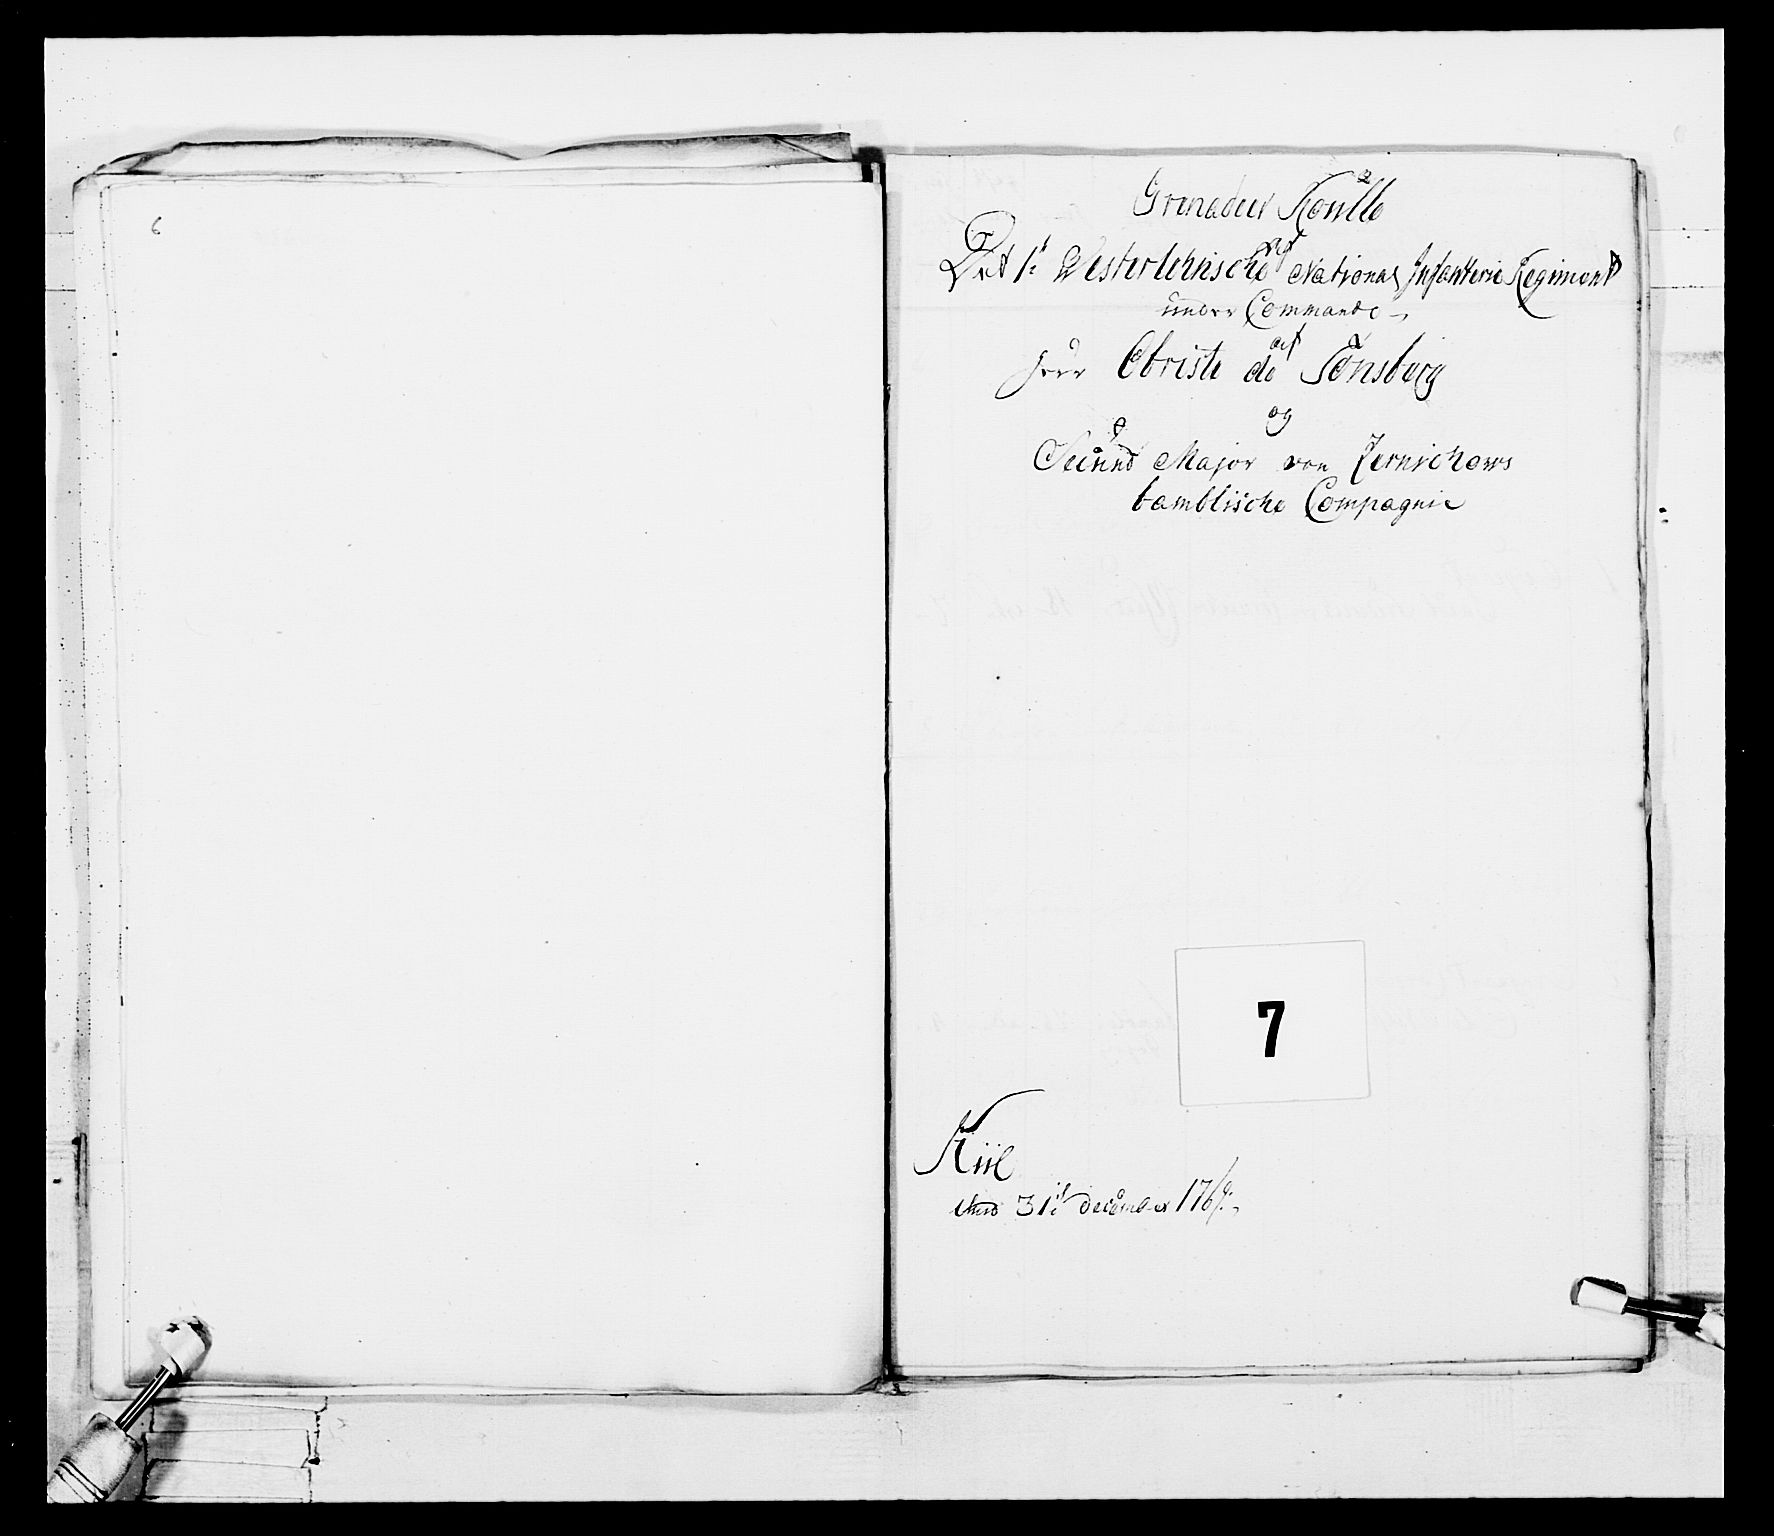 6
Grenadeer Roulle
af
Det 1ste Westerlehnsche National Infanterie Regiment
under Commando
af
Herr Obriste de Tönsberg
og
Secund Major von Zernichows
bamblische Compagnie
7
Kiil
den 31te december 176